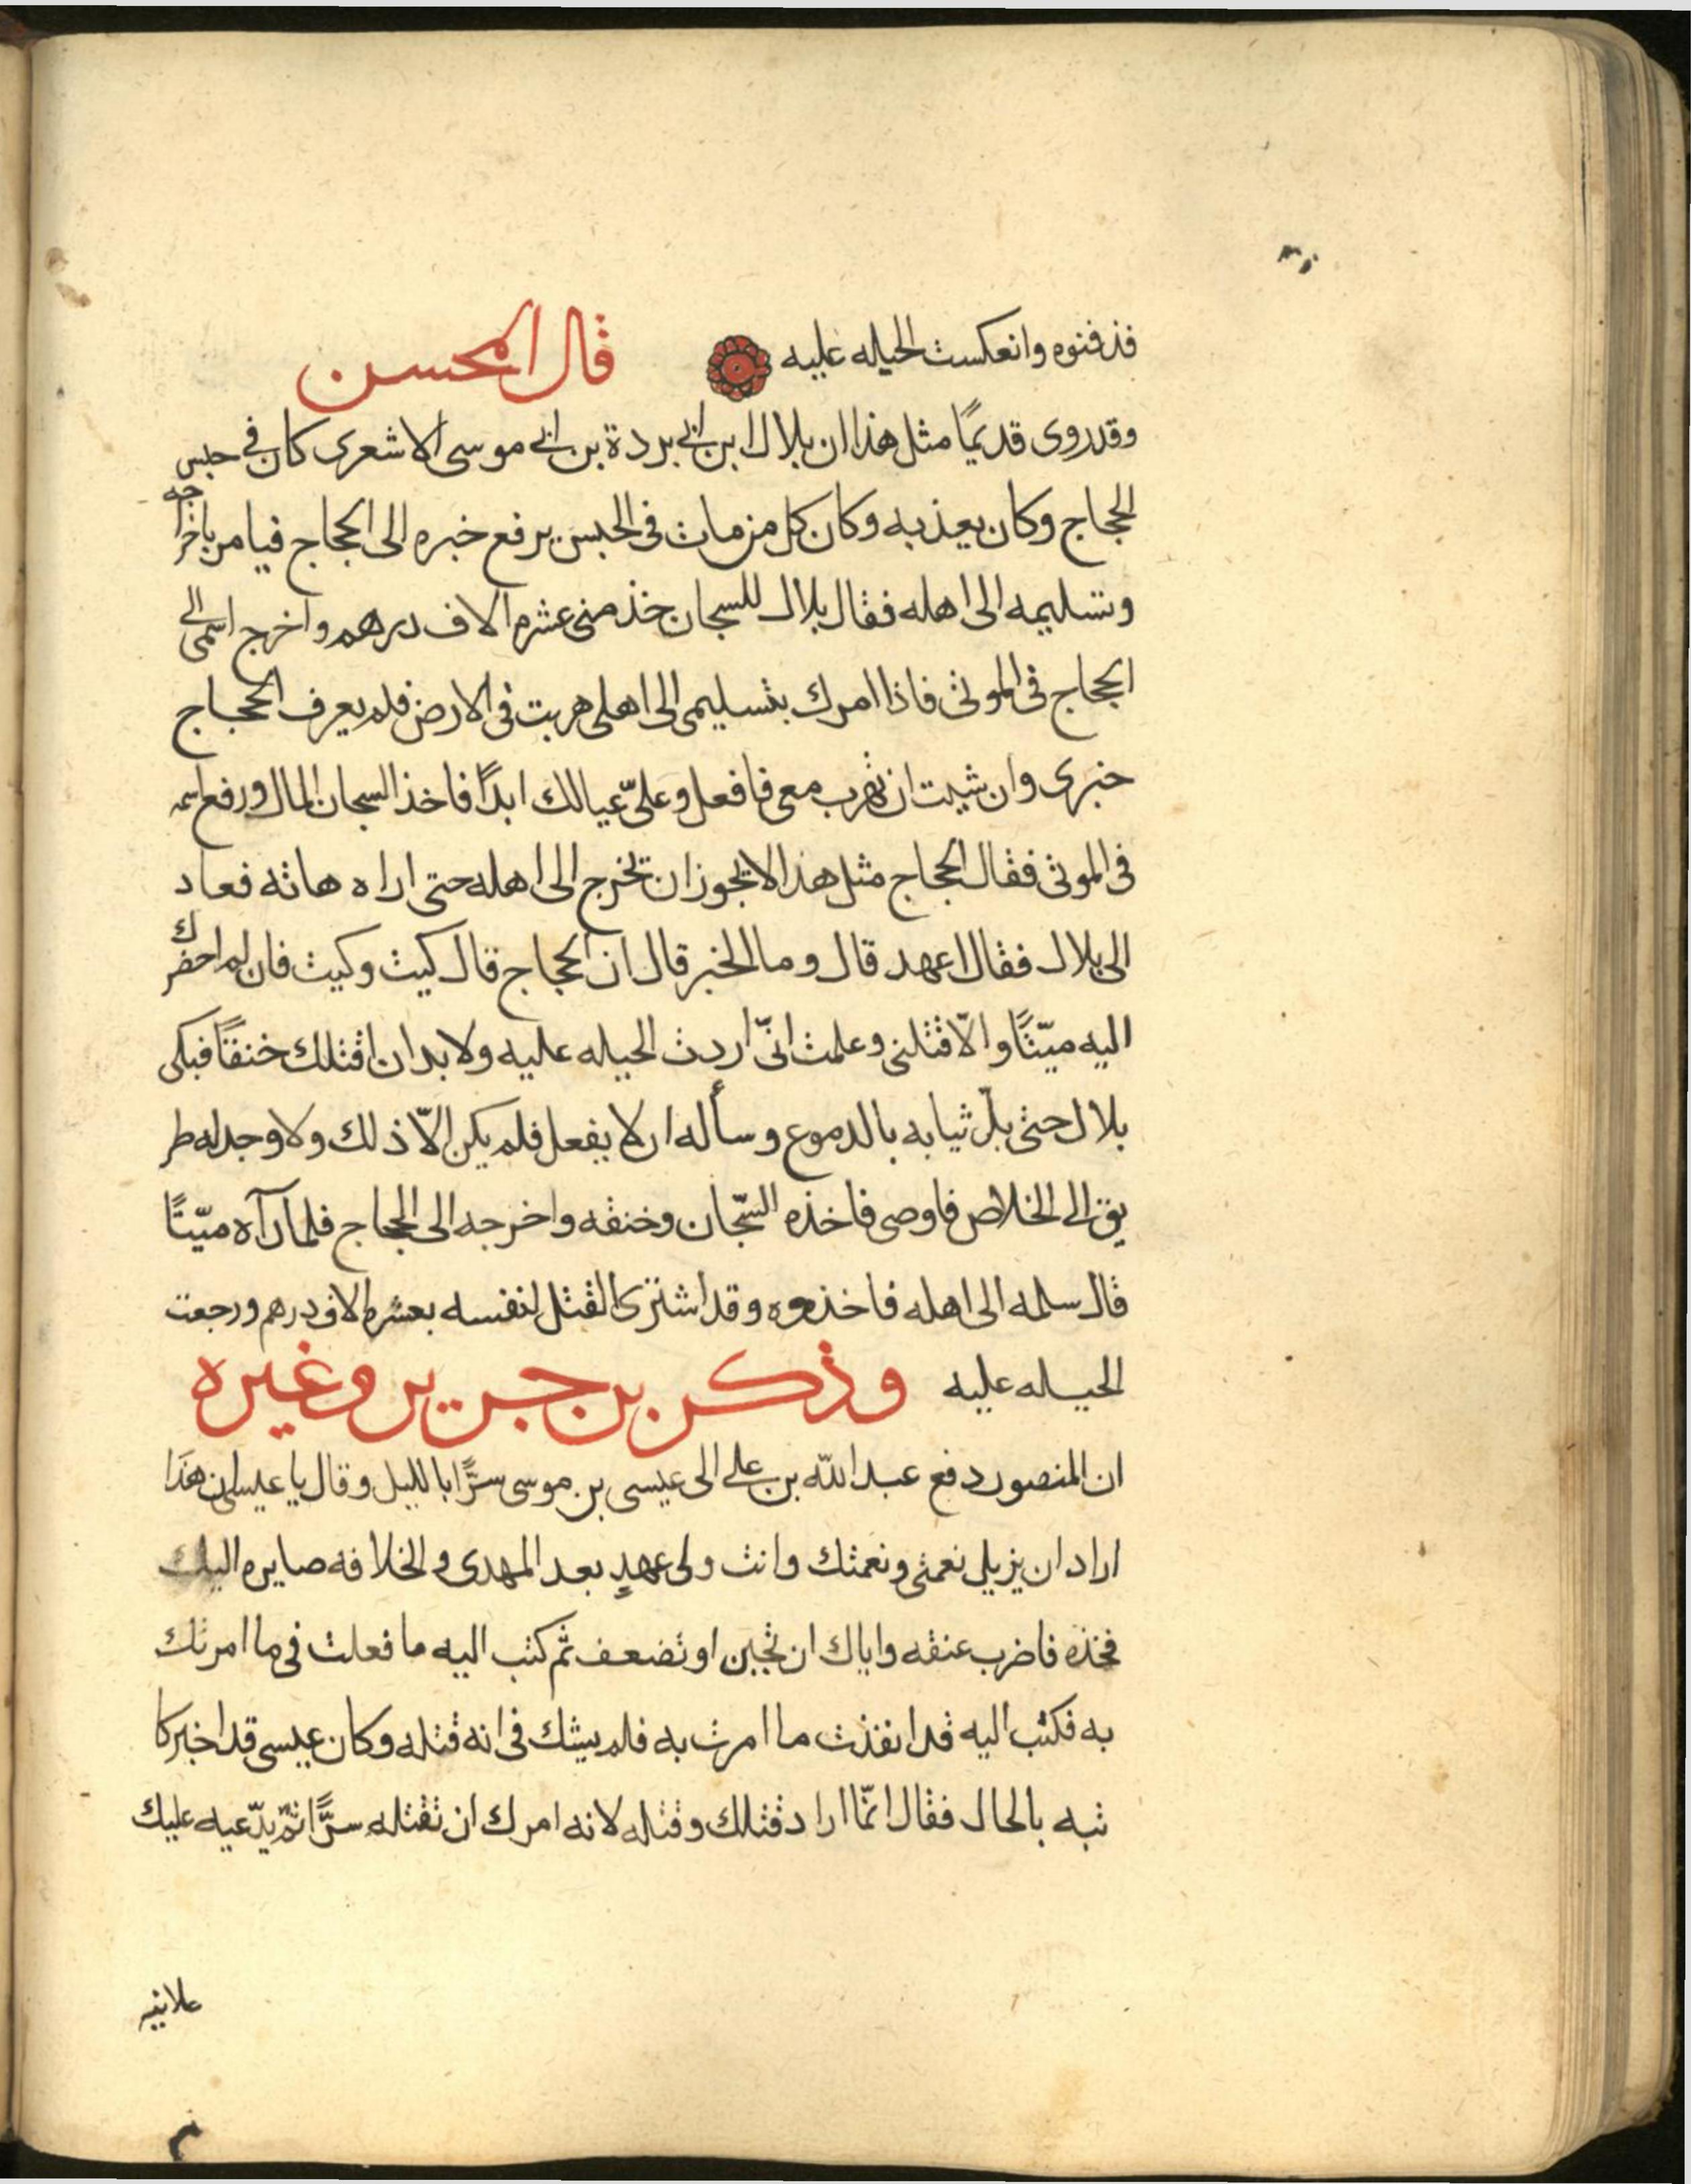 فدفنوه وانعكست الحيله عليه قال المحسن
وقد روى قديمًا مثل هذا ان بلال ابن ابي بردة بن ابي موسى الاشعرى كان في حبس
الحجاج وكان يعذبه وكان كل من مات فى الحبس يرفع خبره الى الحجاج فيامر باخراجه
وتسليمه الى اهله فقال بلال للسجان خذ منى عشره الاف درهم واخرج اسمى الى
الحجاج فى الموتى فاذا امرك بتسليمى الى اهلى هربت فى الارض فلم يعرف الحجاج
خبرى وان شيت ان تهرب معى فافعل وعلىّ عيالك ابدًا فاخذ السجان المال ورفع اسمه
فى الموتى فقال الحجاج مثل هذا لا يجوز ان تخرج الى اهله حتى اراه هاته فعاد
الى بلال فقال اعهد قال وما الخبر قال ان الحجاج قال كيت وكيت فان لم احضرك
اليه ميّتًا والّا قتلنى وعلمت انّى اردت الحيله عليه ولا بد ان اقتلك خنقًا فبكى
بلال حتى بلّ ثيابه بالدموع وسأله ان لا يفعل فلم يكن الّا ذلك ولا وجد له طر
يق الى الخلاص فاوصى فاخذه السّجان وخنقه واخرجه الى الحجاج فلما رآه ميّتًا
قال سلمه الى اهله فاخذوه وقد اشترى القتل لنفسه بعشره الاف درهم ورجعت
الحيله عليه وذكر بن جرير وغيره
ان المنصور دفع عبد الله بن على الى عيسى بن موسى سرًّا بالليل وقال يا عيسى ان هذا
اراد ان يزيل نعمتى ونعمتك وانت ولى عهدٍ بعد المهدى والخلافه صايره اليك
فخذه فاضرب عنقه واياك ان تجبن او تضعف ثم كتب اليه ما فعلت فى ما امرتك
به فكتب اليه قد انفذت ما امرت به فلم يشك فى انه قتله وكان عيسى قد اخبر كا
تبه بالحال فقال انّما اراد قتلك وقتله لانه امرك ان تقتله سرًّا ثم يدّعيه عليك
علانيه